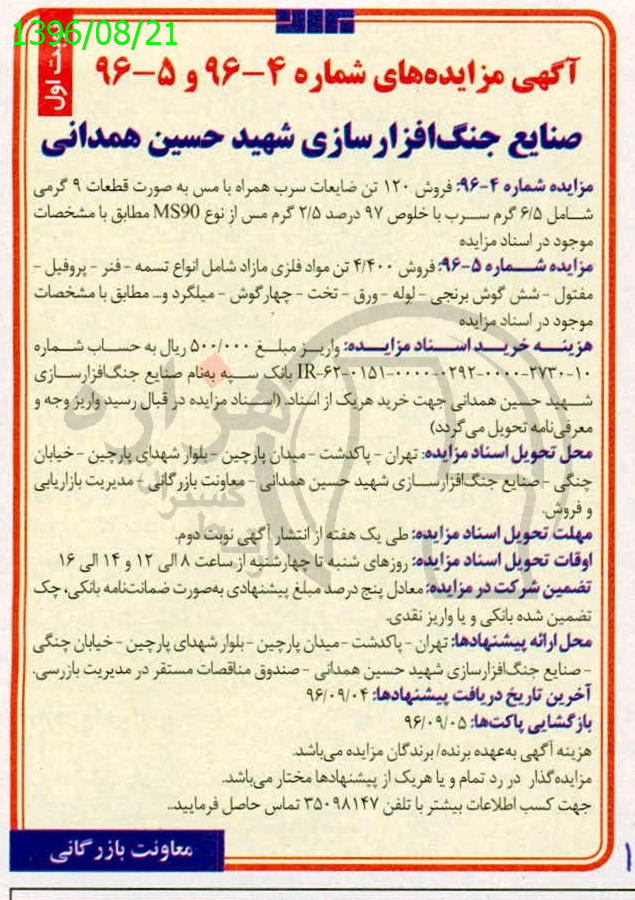 1396/08/21
نوبت اول
آگهی مزایده‌های شماره ۴-۹۶ و ۵-۹۶
صنایع جنگ‌افزارسازی شهید حسین همدانی
مزایده شماره ۴-۹۶: فروش ۱۲۰ تن ضایعات سرب همراه با مس به صورت قطعات ۹ گرمی
شامل ۶/۵ گرم سرب با خلوص ۹۷ درصد ۲/۵ گرم مس از نوع MS90 مطابق با مشخصات
موجود در اسناد مزایده
مزایده شماره ۵-۹۶: فروش ۴/۴۰۰ تن مواد فلزی مازاد شامل انواع تسمه - فنر - پروفیل -
مفتول - شش گوش برنجی - لوله - ورق - تخت - چهارگوش - میلگرد و... مطابق با مشخصات
موجود در اسناد مزایده
هزینه خرید اسناد مزایده: واریز مبلغ ۵۰۰/۰۰۰ ریال به حساب شماره
IR-۶۲-۰۱۵۱-۰۰۰۰-۰۲۹۲-۰۰۰۰-۲۷۳۰-۱۰ بانک سپه به‌نام صنایع جنگ‌افزارسازی
شهید حسین همدانی جهت خرید هریک از اسناد. (اسناد مزایده در قبال رسید واریز وجه و
معرفی‌نامه تحویل می‌گردد)
محل تحویل اسناد مزایده: تهران - پاکدشت - میدان پارچین - بلوار شهدای پارچین - خیابان
چنگی - صنایع جنگ‌افزارسازی شهید حسین همدانی - معاونت بازرگانی - مدیریت بازاریابی
و فروش.
مهلت تحویل اسناد مزایده: طی یک هفته از انتشار آگهی نوبت دوم.
اوقات تحویل اسناد مزایده: روزهای شنبه تا چهارشنبه از ساعت ۸ الی ۱۲ و ۱۴ الی ۱۶
تضمین شرکت در مزایده: معادل پنج درصد مبلغ پیشنهادی به‌صورت ضمانت‌نامه بانکی، چک
تضمین شده بانکی و یا واریز نقدی.
محل ارائه پیشنهادها: تهران - پاکدشت - میدان پارچین - بلوار شهدای پارچین - خیابان چنگی
- صنایع جنگ‌افزارسازی شهید حسین همدانی - صندوق مناقصات مستقر در مدیریت بازرسی.
آخرین تاریخ دریافت پیشنهادها: ۹۶/۰۹/۰۴
بازگشایی پاکت‌ها: ۹۶/۰۹/۰۵
هزینه آگهی به‌عهده برنده/ برندگان مزایده می‌باشد.
مزایده‌گذار در رد تمام و یا هریک از پیشنهادها مختار می‌باشد.
جهت کسب اطلاعات بیشتر با تلفن ۳۵۰۹۸۱۴۷ تماس حاصل فرمایید..
معاونت بازرگانی